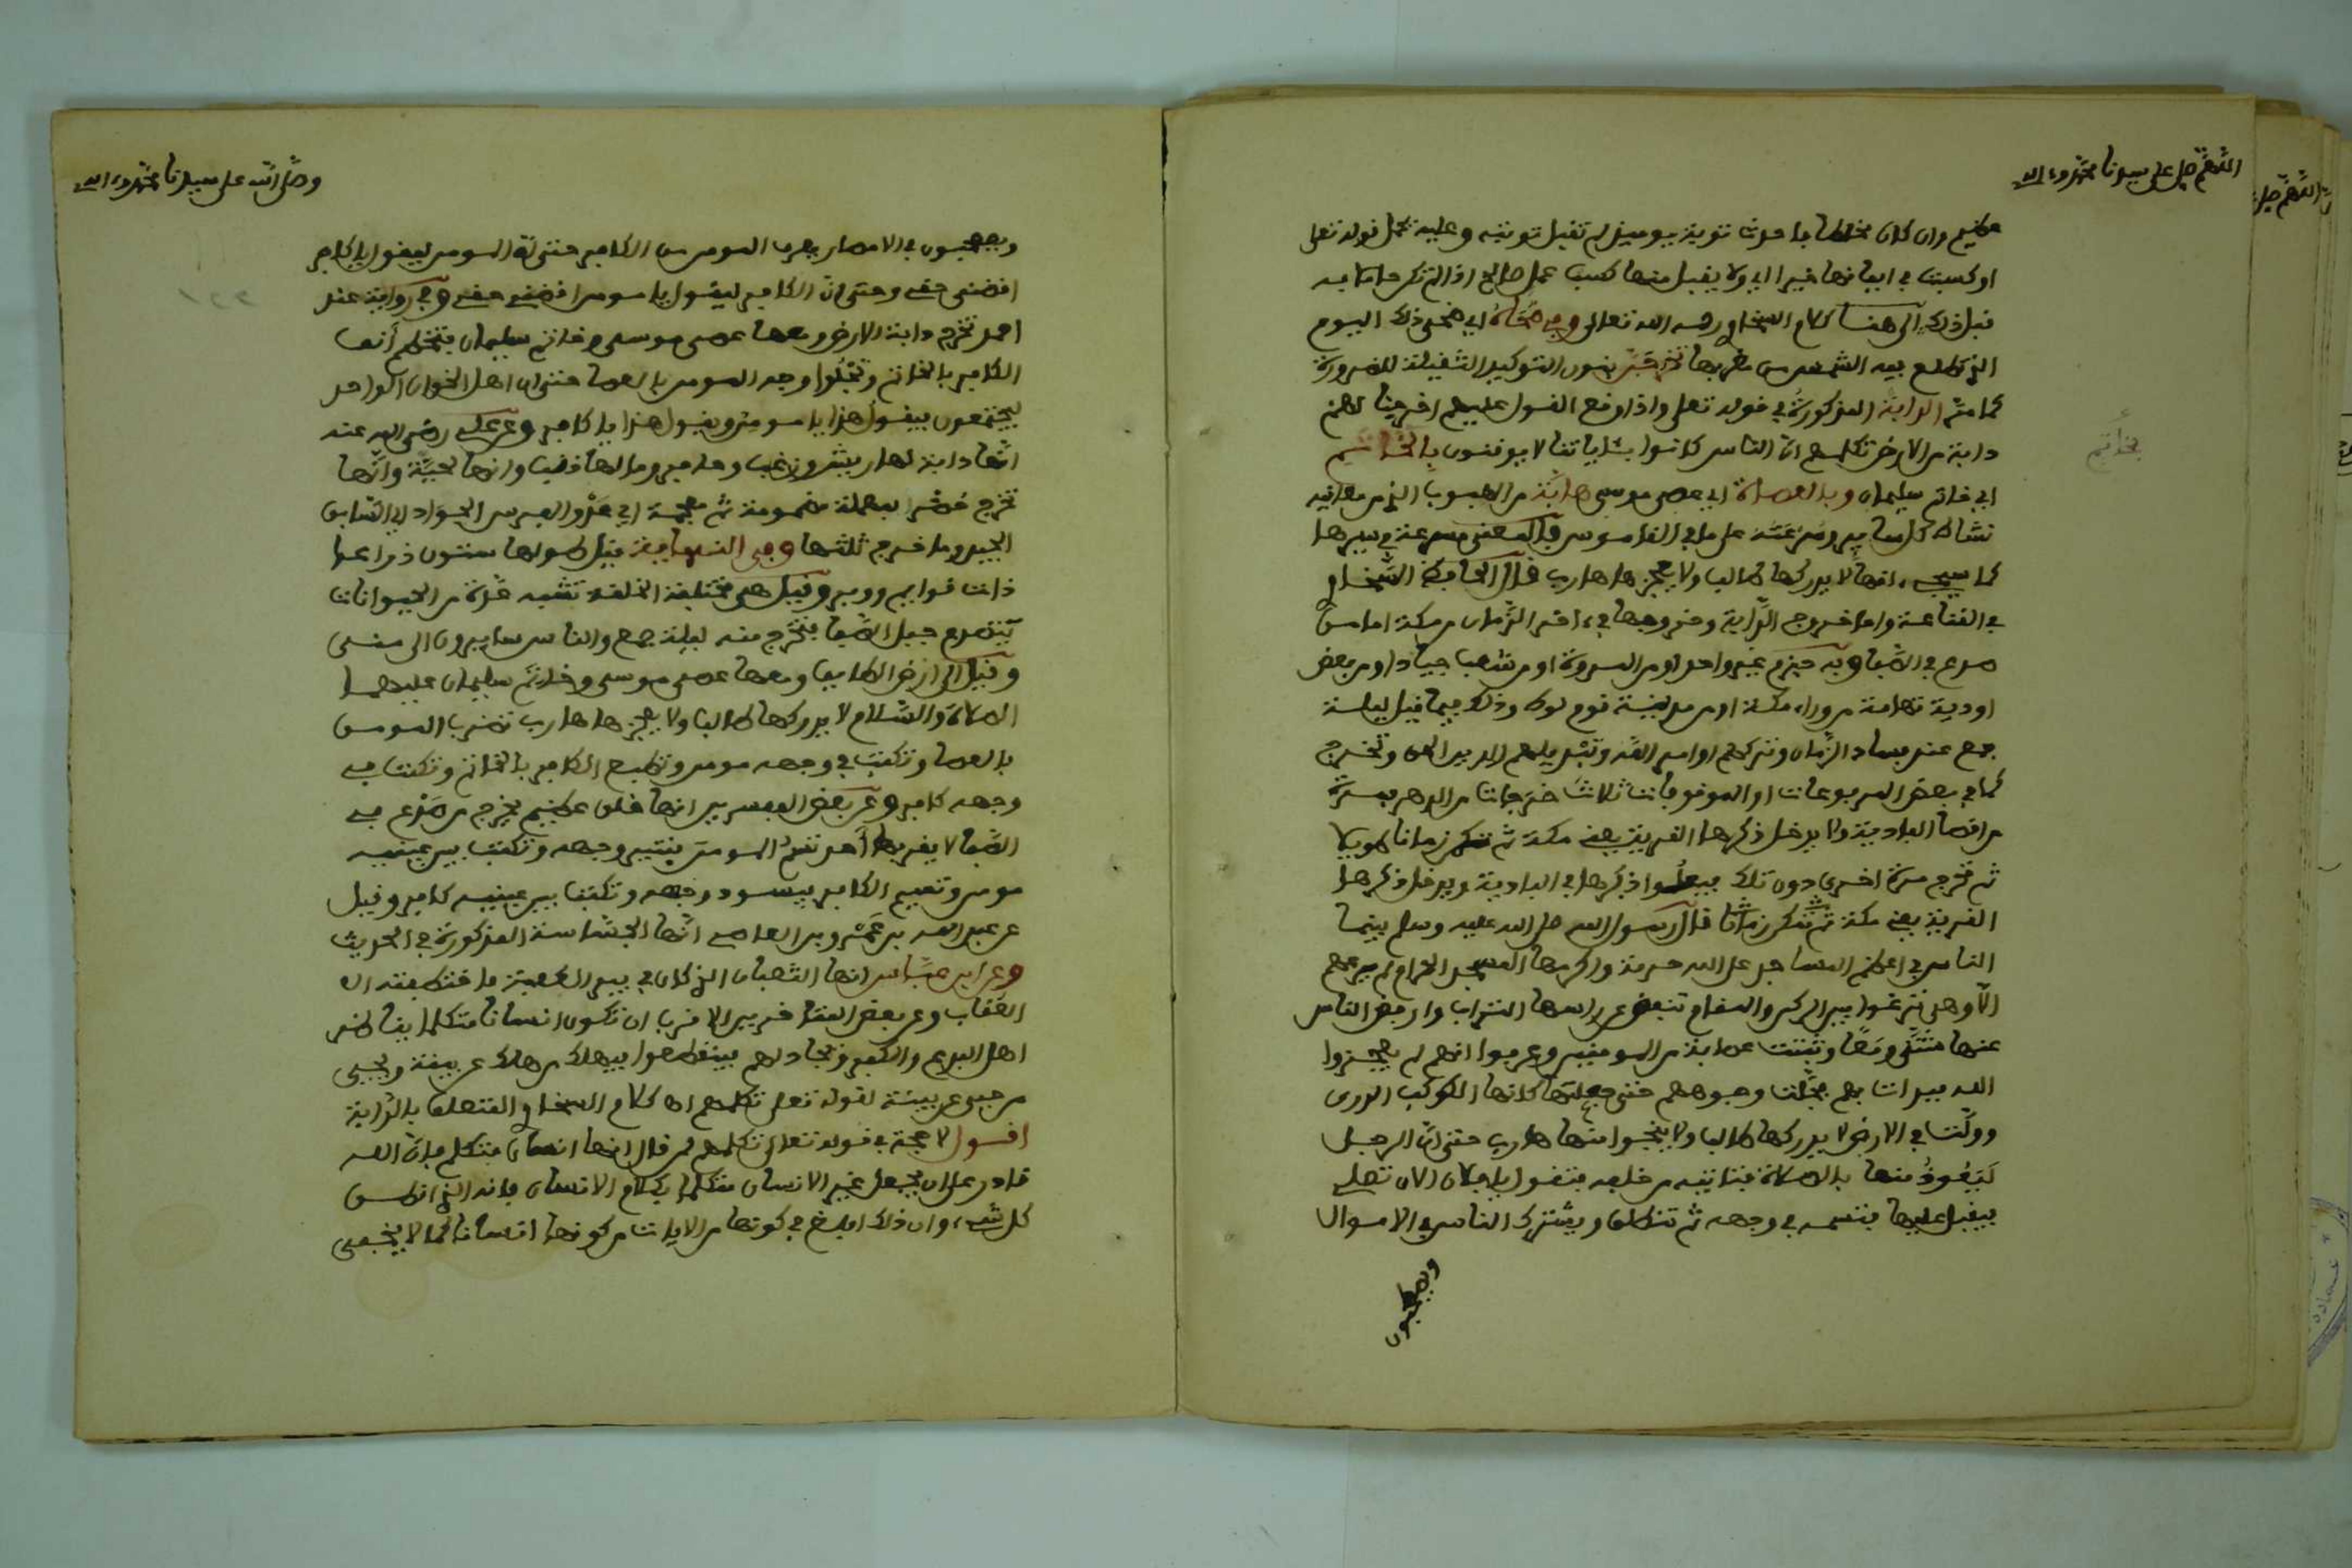 اللهم صل على سيدنا محمد وءاله
عظيم وان كان مخلطا فاحدث توبة يوميذ لم تقبل توبته وعليه يحمل قوله تعلى
او كسبت في ايمانها خيرا اي ولا يقبل منها كسب عمل صالح اذا لم تكن عاملة به
قبل ذلك الى هنا كلام السخاوي رحمه الله تعالى وفي ضحاه اي ضحى ذلك اليوم
الذي تطلع فيه الشمس من مغربها تخرجن بنون التوكيد الثقيلة للضرورة
كما مر الدابة المذكورة في قوله تعلى واذا وقع القول عليهم اخرجنا لهم
دابة من الارض تكلمهم ان الناس كانوا بئاياتنا لا يوقنون بالخاتم
اي خاتم سليمان وبالعصاة اي عصى موسى هابة من الهبوب الذي من معانيه
نشاط كل ساير وسرعته على ما في القاموس والمعنى مسرعة في سيرها
كما سيجيء انها لا يدركها طالب ولا يعجزها هارب قال الحافظ السخاوي
في القناعة واما خروج الدابة وخروجها في ءاخر الزمان من مكة اما من
صدع في الصفا وبه جزم غير واحد او من المروة او من شعب جياد او من بعض
اودية تهامة من وراء مكة او من مدينة قوم لوط وذلك فيما قيل ليلة
جمع عند فساد الزمان وتركهم اوامر الله وتبديلهم الدين الحق وتخرج
كما في بعض المرفوعات او الموقوفات ثلاث خرجات من الدهر فمرة
من اقصا البادية ولا يدخل ذكرها القرية يعني مكة ثم تمكن زمانا طويلا
ثم تخرج مرة اخرى دون تلك فيعلوا ذكرها في البادية ويدخل ذكرها
القرية يعني مكة ثم تمكن زمانا قال رسول الله صلى الله عليه وسلم بينما
الناس في اعظم المساجد على الله حرمة واكرمها المسجد الحرام لم يرعهم
الا وهي ترغوا بين الركن والمقام تنفض عن راسها التراب وارفض الناس
عنها شتى ومعا وثبتت عصابة من المومنين وعرفوا انهم لم يعجزوا
الله فبدات بهم فجلت وجوههم حتى جعلتها كانها الكوكب الدري
وولت في الارض لا يدركها طالب ولا ينجوا منها هارب حتى ان الرجل
ليعوذ منها بالصلاة فتاتيه من خلفه فتقول يا فلان الان تصلي
فيقبل عليها فتسمه في وجهه ثم تنطلق ويشترك الناس في الاموال
ويصطحبون
بخاتم
وصلى الله على سيدنا محمد وءاله
ويصطحبون في الامصار يعرف المومن من الكافر حتى ان المومن ليقول يا كافر
اقضني حقي وحتى ان الكافر ليقول يا مومن اقضني حقي وفي رواية عند
احمد تخرج دابة الارض ومعها عصى موسى وخاتم سليمان فتخطم أنف
الكافر بالخاتم وتجلوا وجه المومن بالعصا حتى ان اهل الخوان الواحد
ليجتمعون فيقول هذا يا مومن ويقول هذا يا كافر وعن علي رضي الله عنه
انها دابة لها ريش وزغب وحافر وما لها ذنب وانها لحية وانها
تخرج حضر بمهملة مضمومة ثم معجمة اي عدو الفرس الجواد اي السابق
الجيد وما خرج ثلثها وفي النهاية قيل طولها ستون ذراعا
ذات قوايم ووبر وقيل هي مختلفة الخلقة تشبه عدة من الحيوانات
ينصدع جبل الصفا فتخرج منه ليلة جمع والناس سايرون الى منى
وقيل من ارض الطايف ومعها عصى موسى وخاتم سليمان عليهما
الصلاة والسلام لا يدركها طالب ولا يعجزها هارب تضرب المومن
بالعصا وتكتب في وجهه مومن وتطبع الكافر بالخاتم وتكتب في
وجهه كافر وعن بعض المفسرين انها خلق عظيم يخرج من صدع في
الصفا لا يفوتها أحد تسم المومن فينير وجهه وتكتب بين عينيه
مومن وتسم الكافر فيسود وجهه وتكتب بين عينيه كافر وقيل
عن عبد الله بن عمرو بن العاصي انها الجساسة المذكورة في الحديث
وعن ابن عباس انها الثعبان الذي كان في بير الكعبة فاختطفته
العقاب وعن بعض المتاخرين الاقرب ان تكون انسانا متكلما يناظر
اهل البدع والكفر ويجادلهم فينقطعوا فيهلك من هلك عن بينة ويحيى
من حيي عن بينة لقوله تعلى تكلمهم اه كلام السخاوي المتعلق بالدابة
اقول لا حجة في قوله تعالى تكلمهم لمن قال انها انسان متكلم فان الله
قادر على ان يجعل غير الانسان متكلما بكلام الانسان فانه الذي انطق
كل شيء وان ذلك ابلغ في كونها من الايات من كونها انسانا كما لا يخفى